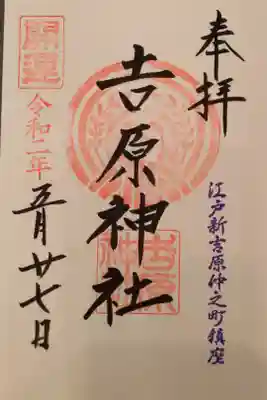 奉拝
江戸新吉原仲之町鎮座
吉原神社
開運
令和二年
五月廿七日
吉原神社